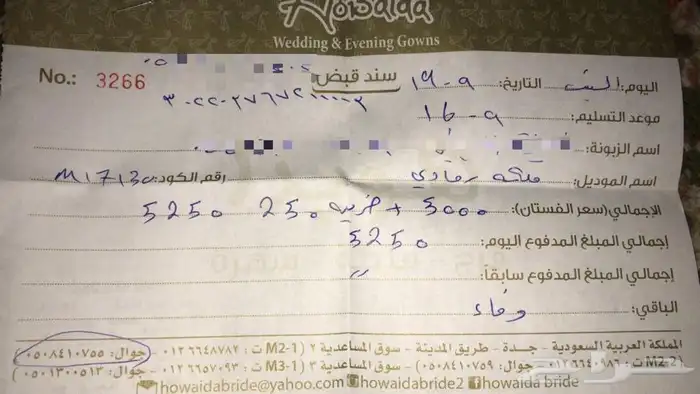 Howaida
Wedding & Evening Gowns
No.: 3266
سند قبض
اليوم: السبت التاريخ: ٩-١٩
موعد التسليم: ٩-١٦
اسم الزبونة:
اسم الموديل: رمادي رقم الكود: M1713c
الإجمالي (سعر الفستان): 5000 + ضريبه 250 5250
إجمالي المبلغ المدفوع اليوم: 5250
إجمالي المبلغ المدفوع سابقاً: "
الباقي: وفاء
المملكة العربية السعودية - جدة - طريق المدينة - سوق المساعدية ٢ (M2-1 ت: ٠١٢٦٦٤٨٧٨٢ - جوال: ٠٥٠٨٤١٠٧٥٥)
(M2-2 ت: ٠١٢٦٦٤٠٩٨٦ - جوال: ٠٥٠٨٤١٠٧٥٩) - سوق المساعدية ٣ (M3-1 ت: ٠١٢٦٦٥٧٠٩٣ - جوال: ٠٥٠١٣٠٠٥١٣)
howaidabride@yahoo.com howaidabride2 howaida bride